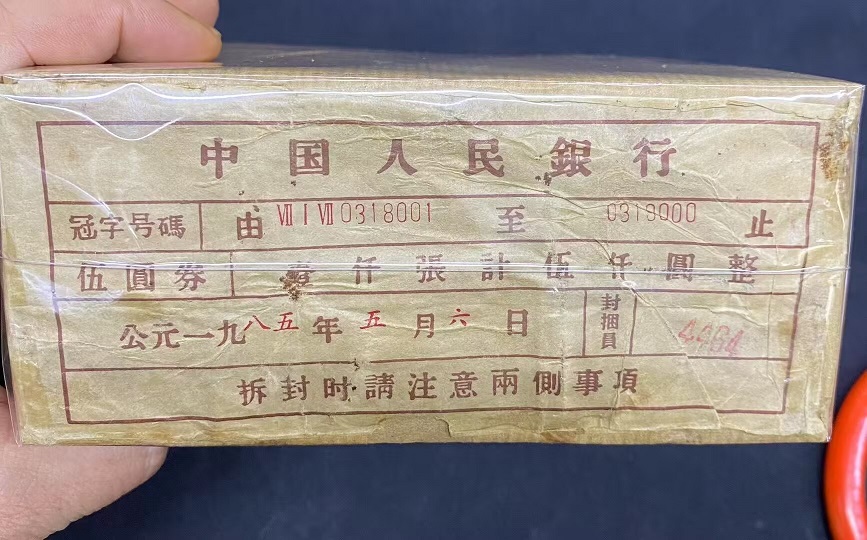 中国人民銀行
冠字号碼 由 ⅧⅠⅧ 0318001 至 0319000 止
伍圓券 壹仟張計伍仟圓整
公元一九八五年五月六日 封捆員 4464
拆封时請注意兩側事項